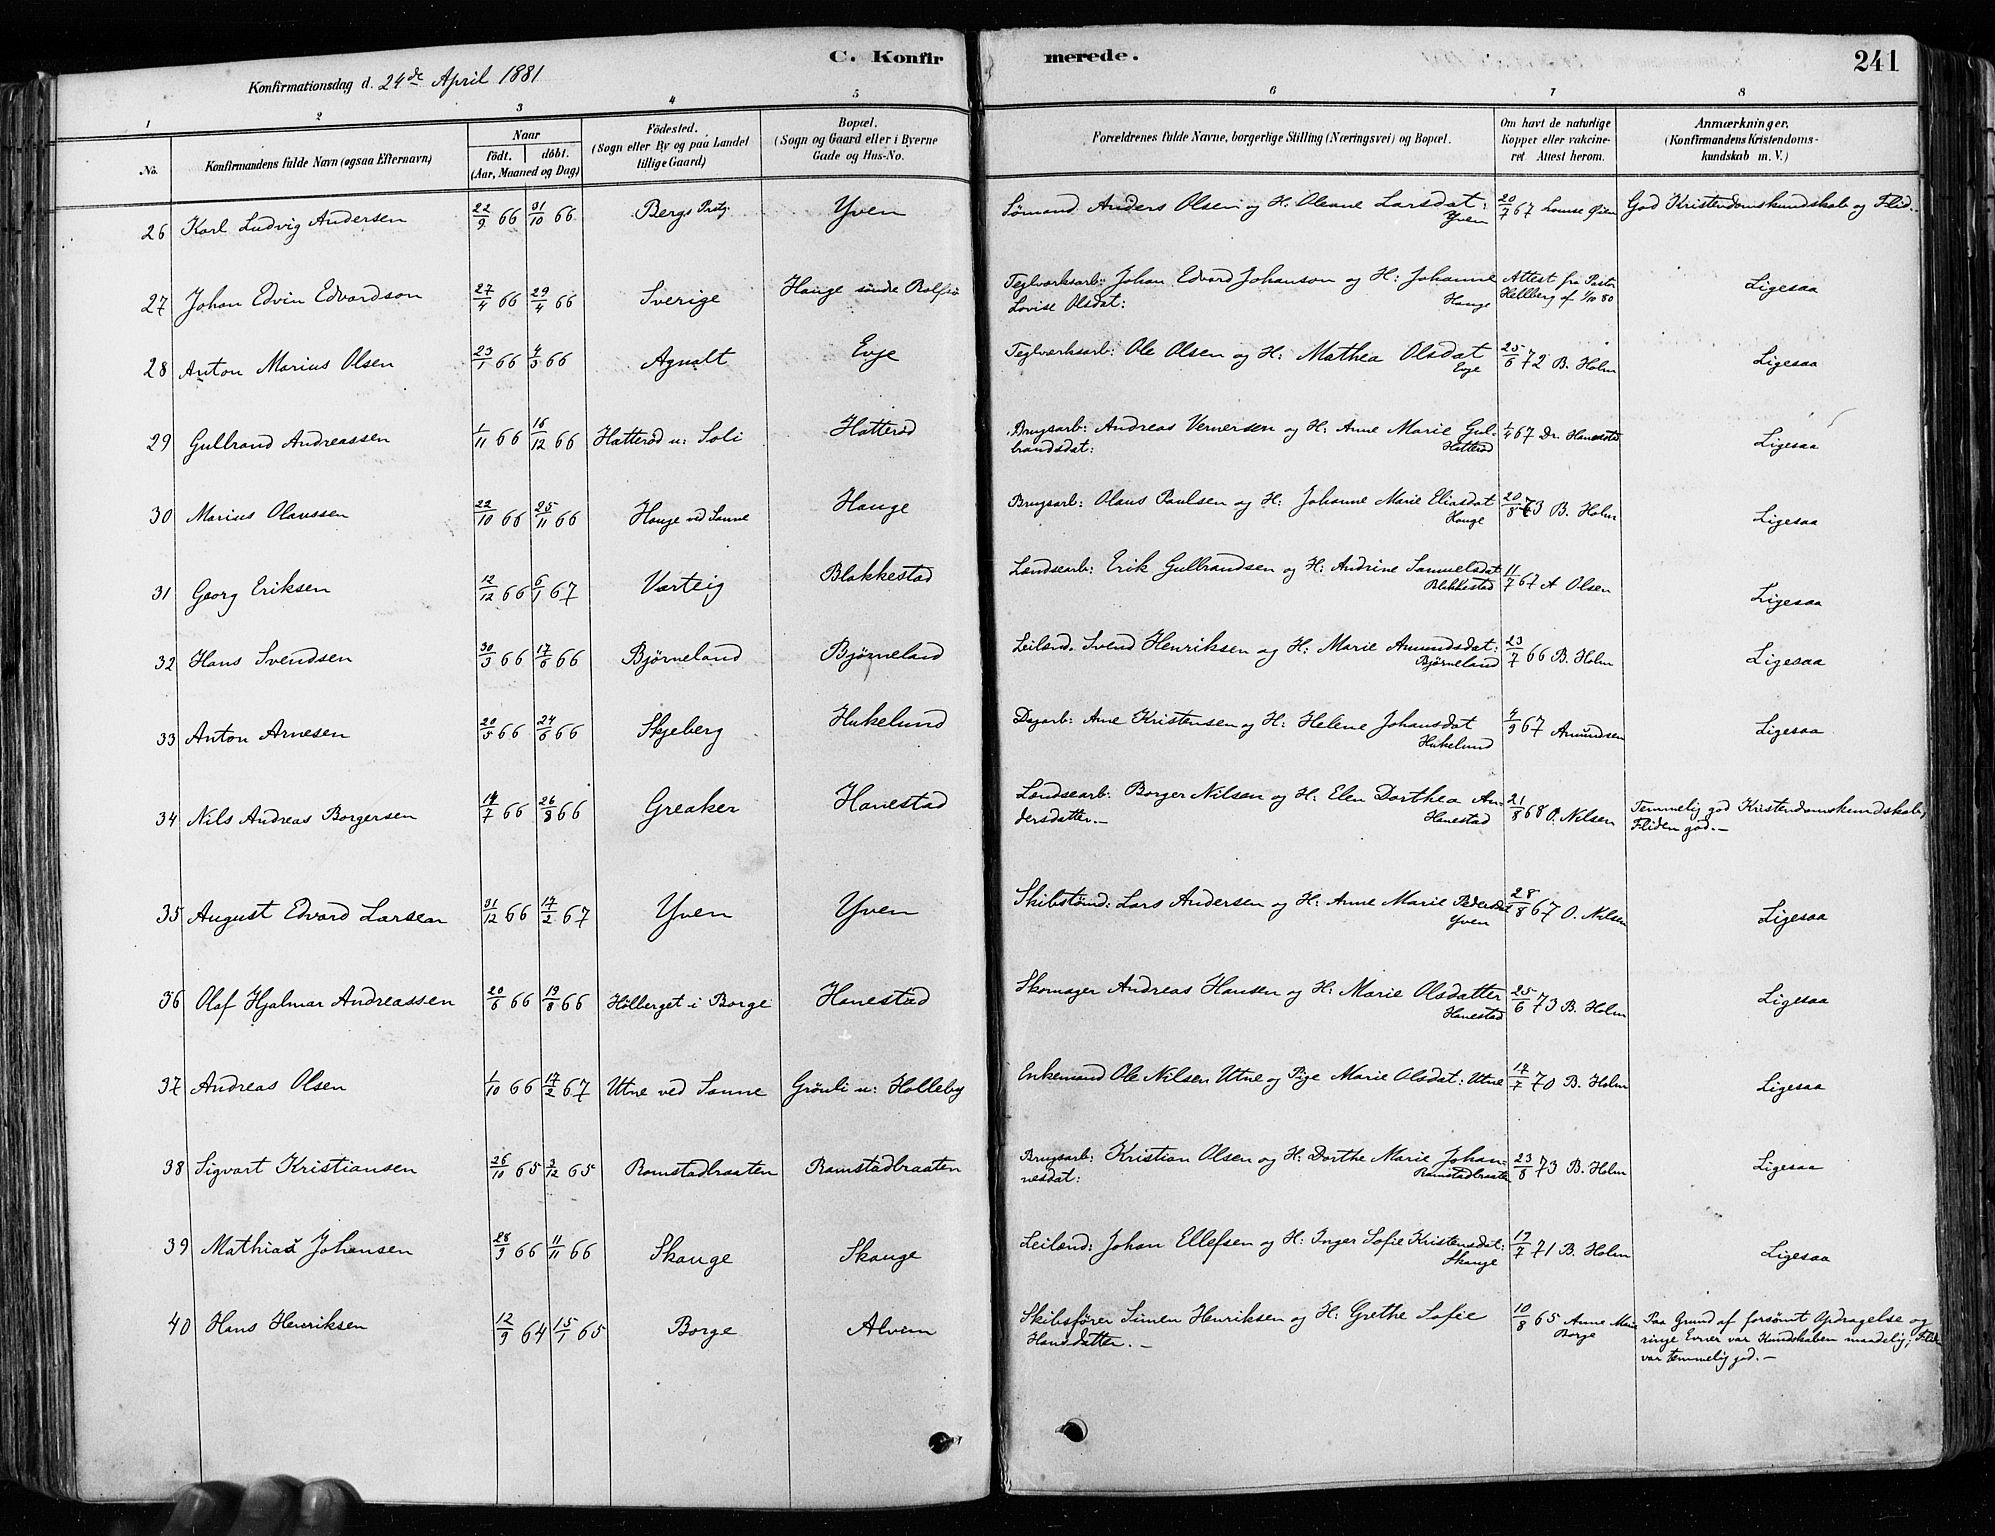 C. Konfirmerede.
241
Konfirmationsdag d. 24de April 1881
1 2 3 4 5 6 7 8
No.
Konfirmandens fulde Navn (ogsaa Efternavn)
Naar
födt. döbt.
(Aar, Maaned og Dag)
Födested.
(Sogn eller By og paa Landet
tillige Gaard)
Bopæl.
(Sogn og Gaard eller i Byerne
Gade og Hus-No.
Forældrenes fulde Navne, borgerlige Stilling (Næringsvei) og Bopæl.
Om havt de naturlige
Kopper eller vakcine-
ret. Attest herom.
Anmærkninger.
(Konfirmandens Kristendoms-
kundskab m. V.)
26 Karl Ludvig Andersen 22/9 66 31/10 66 Bergs Yven Sømand Anders Olsen og H: Oleane Larsdat: 20/7 67 God Kristendomskundskab og Flid.
Yven
27 Johan Edvin Edvardson 27/4 66 29/4 66 Sverige Hauge søndre Teglverksarb: Johan Edvard Johanson og H: Johanne Attest fra Pastor Ligesaa
Lovise Olsdat: Hauge Hellberg af 1/10 80
28 Anton Marius Olsen 23/1 66 4/3 66 Agnalt Evje Teglverksarb: Ole Olsen og H: Mathea Olsdat 25/6 72 B. Holm Ligesaa
Evje
29 Gulbrand Andreassen 1/11 66 16/12 66 Hatterød u: Soli Hatterød Brugsarb: Andreas Vernersen og H: Anne Marie Gul- 1/4 67 Dr. Hanestad Ligesaa
brandsdat: Hatterød
30 Marius Olaussen 22/10 66 25/11 66 Hauge ved Sanne Hauge Brugsarb: Olaus Paulsen og H: Johanne Marie Eliasdat 20/8 73 B. Holm Ligesaa
Hauge
31 Georg Eriksen 12/12 66 6/1 67 Varteig Blakkestad Lændsearb: Erik Gulbrandsen og H: Andrine Samuelsdat 11/7 67 A Olsen Ligesaa
Blakkestad
32 Hans Svendsen 30/3 66 17/6 66 Bjørneland Bjørneland Leilænd. Svend Henriksen og H: Marie Amundsdat: 23/7 66 B. Holm Ligesaa
Bjørneland
33 Anton Arnesen 20/5 66 24/6 66 Skjeberg Hukelund Dagarb: Arne Kristensen og H: Helene Johansdat 4/9 67 Amundsen Ligesaa
Hukelund
34 Nils Andreas Borgersen 14/7 66 26/8 66 Greaker Hanestad Lændsearb: Borger Nilsen og H: Elen Dorthea An- 21/8 68 O. Nilsen Temmelig god Kristendomskundskab,
dersdatter.- Hanestad Fliden god.-
35 August Edvard Larsen 31/12 66 17/2 67 Yven Yven Skibstømd: Lars Andersen og H: Anne Marie Pedersdat 28/8 67 O. Nilsen Ligesaa
Yven
36 Olaf Hjalmar Andreassen 20/6 66 19/8 66 Hólberget i Borge Hanestad Skomager Andreas Hansen og H: Marie Olsdatter 25/6 73 B. Holm Ligesaa
Hanestad
37 Andreas Olsen 1/10 66 17/2 67 Utne ved Sanne Grönli u: Holleby Enkemand Ole Nilsen Utne og Pige Marie Olsdat: Utne 14/7 70 B. Holm Ligesaa
38 Sigvart Kristiansen 26/10 65 3/12 65 Ramstadbraaten Ramstadbraaten Brugsarb: Kristian Olsen og H: Dorthe Marie Johan- 23/8 73 B. Holm Ligesaa
nesdat: Ramstadbraaten
39 Mathias Johansen 28/9 66 11/11 66 Skauge Skauge Leilænd: Johan Ellefsen og H: Inger Sofie Kristensdat: 19/7 71 B. Holm Ligesaa
Skauge
40 Hans Henriksen 12/9 64 15/1 65 Borge Alvim Skibsfører Simen Henriksen og H: Grethe Sofie 10/8 65 Anne Marie Paa Grund af forsömt Opdragelse og
Hansdatter.- Borge ringe Evner var Kundskaben maadelig; Flid
var temmelig god.-